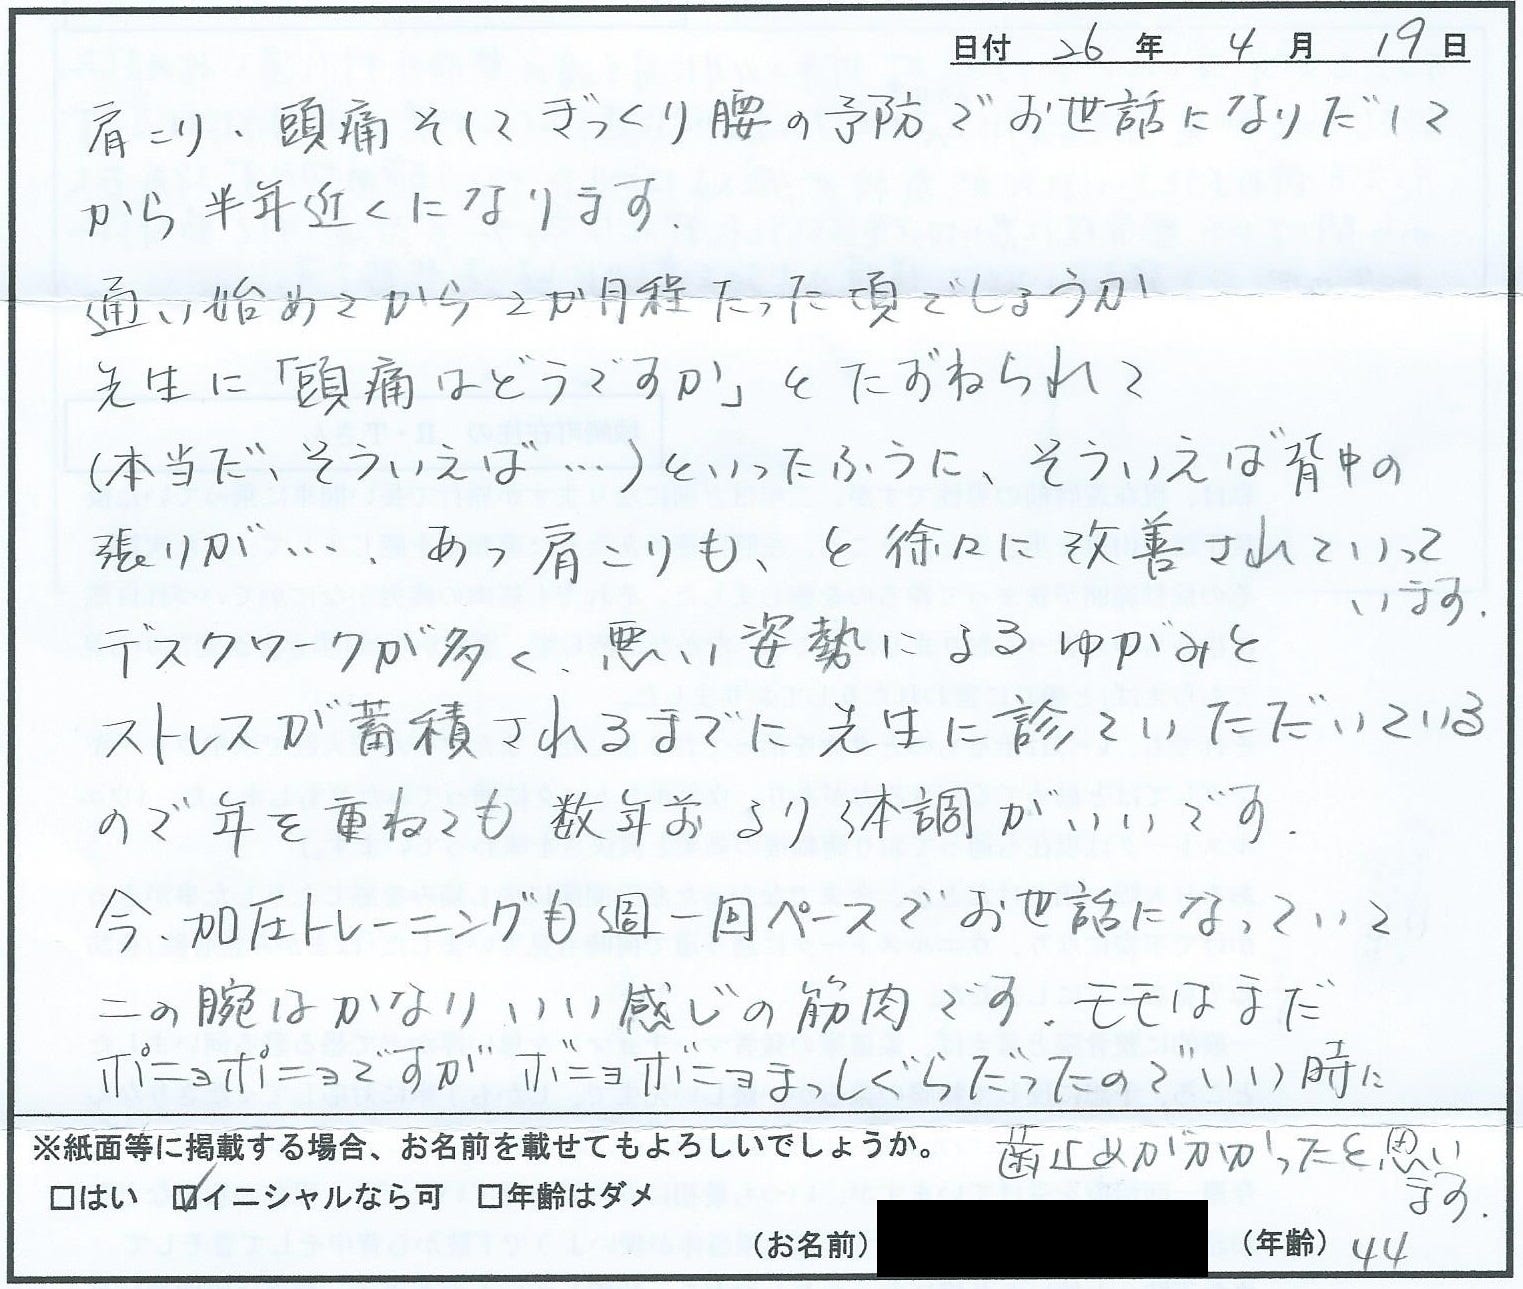 日付 26 年 4 月 19 日
肩こり、頭痛そしてぎっくり腰の予防でお世話になりだして
から半年近くになります.
通い始めてから2か月程たった頃でしょうか
先生に「頭痛はどうですか」とたずねられて
(本当だ、そういえば…)といったふうに、そういえば背中の
張りが…、あっ肩こりも、と徐々に改善されていって
います.
デスクワークが多く、悪い姿勢によるゆがみと
ストレスが蓄積されるまでに先生に診ていただいている
ので年を重ねても数年前より体調がいいです.
今、加圧トレーニングも週一回ペースでお世話になっていて
二の腕はかなりいい感じの筋肉です. モモはまだ
ポニョポニョですが ボニョボニョまっしぐらだったのでいい時に
歯止めがかかったと思い
ます.
※紙面等に掲載する場合、お名前を載せてもよろしいでしょうか。
□はい ☑イニシャルなら可 □年齢はダメ
(お名前) (年齢) 44